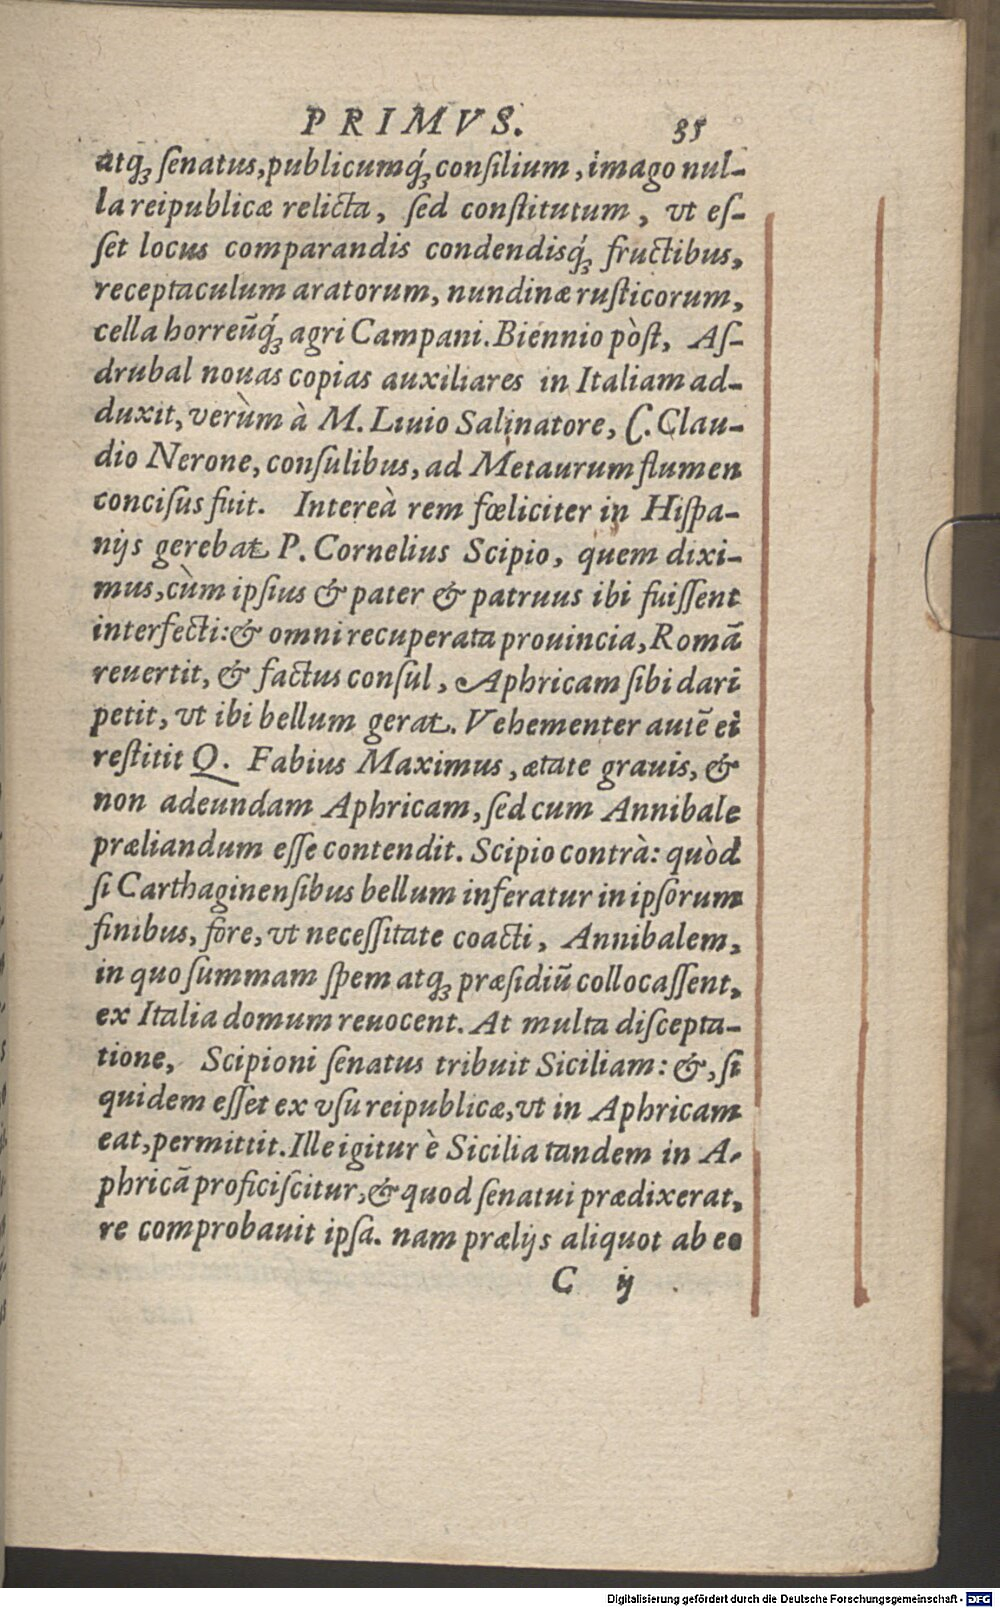 PRIMVS. 35
atq́ꝫ ſenatus, publicumq́ꝫ conſilium, imago nul-
la reipublicæ relicta, ſed conſtitutum, vt eſ-
ſet locus comparandis condendisq́ꝫ fructibus,
receptaculum aratorum, nundinæ ruſticorum,
cella horreūq́ꝫ agri Campani. Biennio pòſt, Aſ-
drubal nouas copias auxiliares in Italiam ad-
duxit, verùm à M. Liuio Salinatore, C. Clau-
dio Nerone, conſulibus, ad Metaurum flumen
conciſus fuit. Intereà rem fœliciter in Hiſpa-
nijs gerebat P. Cornelius Scipio, quem dixi-
mus, cùm ipſius & pater & patruus ibi fuiſſent
interfecti: & omni recuperata prouincia, Romā
reuertit, & factus conſul, Aphricam ſibi dari
petit, vt ibi bellum gerat. Vehementer autē ei
reſtitit Q. Fabius Maximus, ætate grauis, &
non adeundam Aphricam, ſed cum Annibale
præliandum eſſe contendit. Scipio contrà: quòd
ſi Carthaginenſibus bellum inferatur in ipſorum
finibus, fore, vt neceſſitate coacti, Annibalem,
in quo ſummam ſpem atqꝫ præſidiū collocaſſent,
ex Italia domum reuocent. At multa diſcepta-
tione, Scipioni ſenatus tribuit Siciliam: &, ſi
quidem eſſet ex vſu reipublicæ, vt in Aphricam
eat, permittit. Ille igitur è Sicilia tandem in A-
phricā proficiſcitur, & quod ſenatui prædixerat,
re comprobauit ipſa. nam prælijs aliquot ab eo
C ij
Digitalisierung gefördert durch die Deutsche Forschungsgemeinschaft - DFG